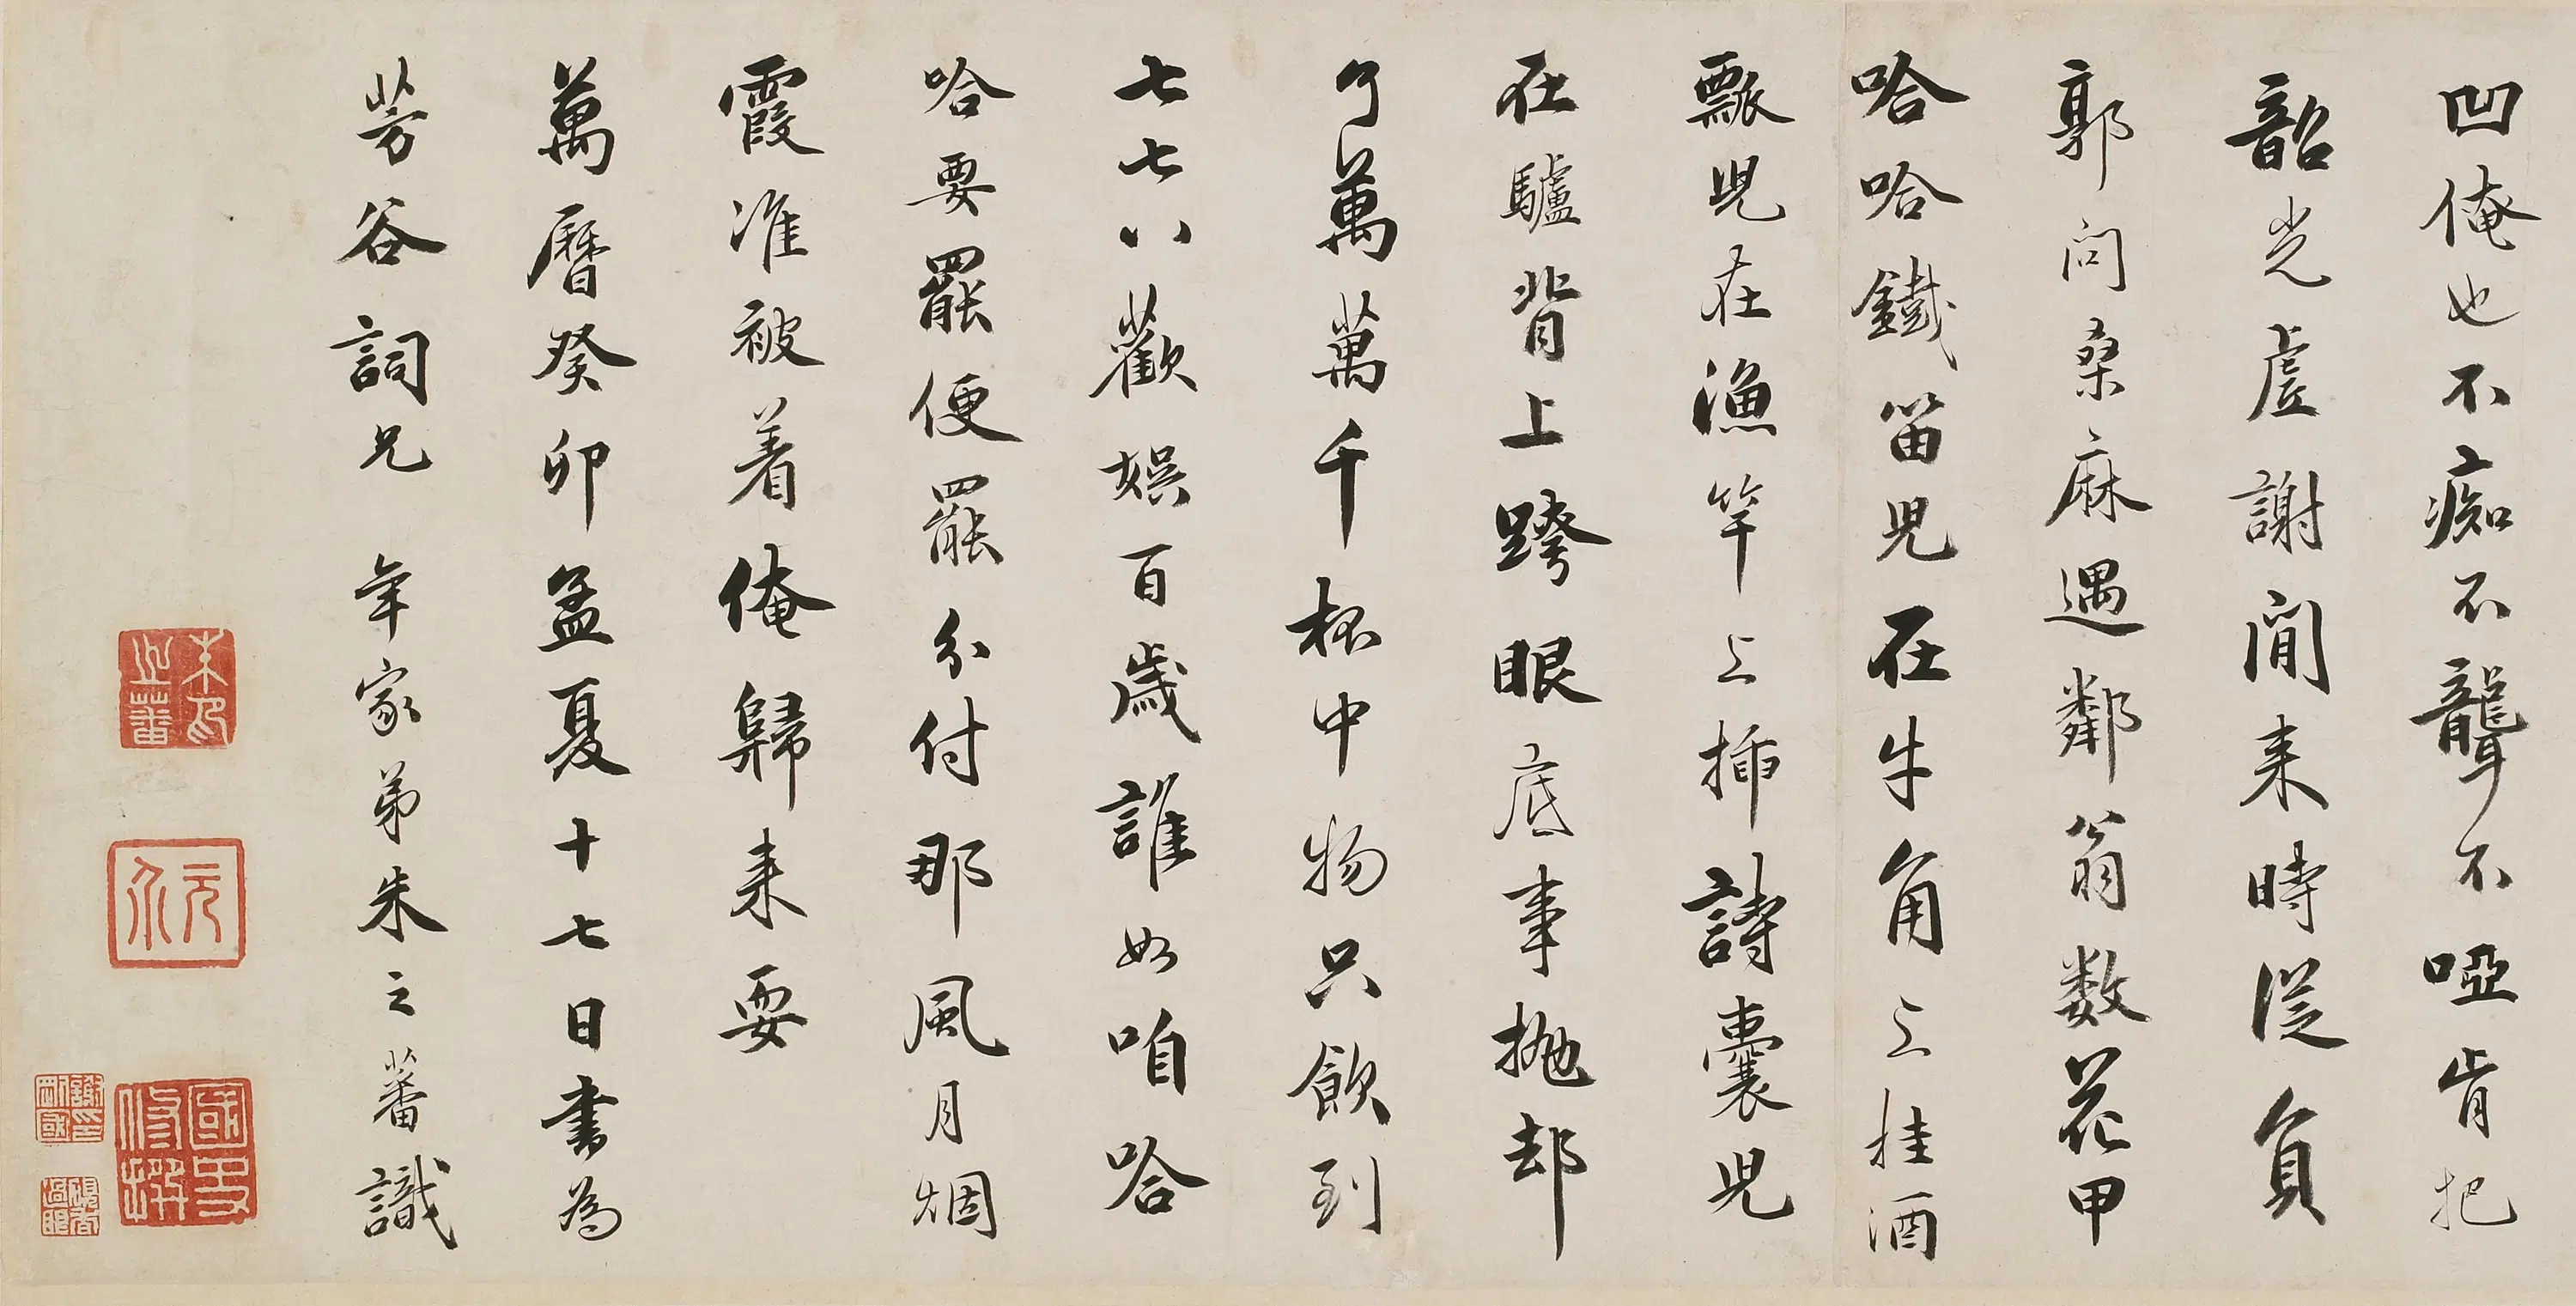 凹俺也不痴不聾不啞肯把
韶光虛謝閒来時從負
郭問桑麻遇鄰翁数花甲
哈哈鐵笛児在牛角上挂酒
瓢児在漁竿上挿詩囊児
在驢背上跨眼底事抛却
了萬萬千杯中物只飲到
七七八歡娱百歲誰如咱哈
哈要罷便罷分付那風月烟
霞准被着俺歸来耍
萬曆癸卯孟夏十七日書為
芳谷詞兄 年家弟朱之蕃識
朱印之蕃
元介
國史修撰